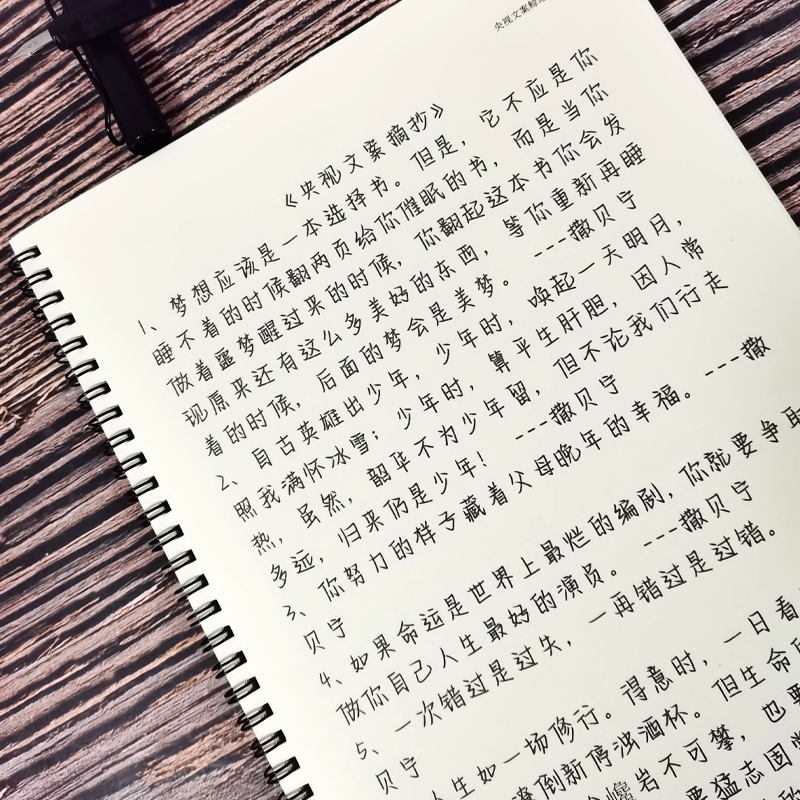 央视文案
《央视文案摘抄》
1、梦想应该是一本选择书。但是，它不应是你
睡不着的时候翻两页给你催眠的书，而是当你
做着噩梦醒过来的时候，你翻起这本书你会发
现原来还有这么多美好的东西，等你重新再睡
着的时候，后面的梦会是美梦。---撒贝宁
2、自古英雄出少年，少年时，唤起一天明月，
照我满怀冰雪；少年时，算平生肝胆，因人常
热，虽然，韶华不为少年留，但不论我们行走
多远，归来仍是少年！---撒贝宁
3、你努力的样子藏着父母晚年的幸福。---撒
贝宁
4、如果命运是世界上最烂的编剧，你就要争取
做你自己人生最好的演员。---撒贝宁
5、一次错过是过失，一再错过是过错。
贝宁
人生如一场修行。得意时，一日看
潦倒新停浊酒杯。但生命
巉岩不可攀，也要
要猛志固常